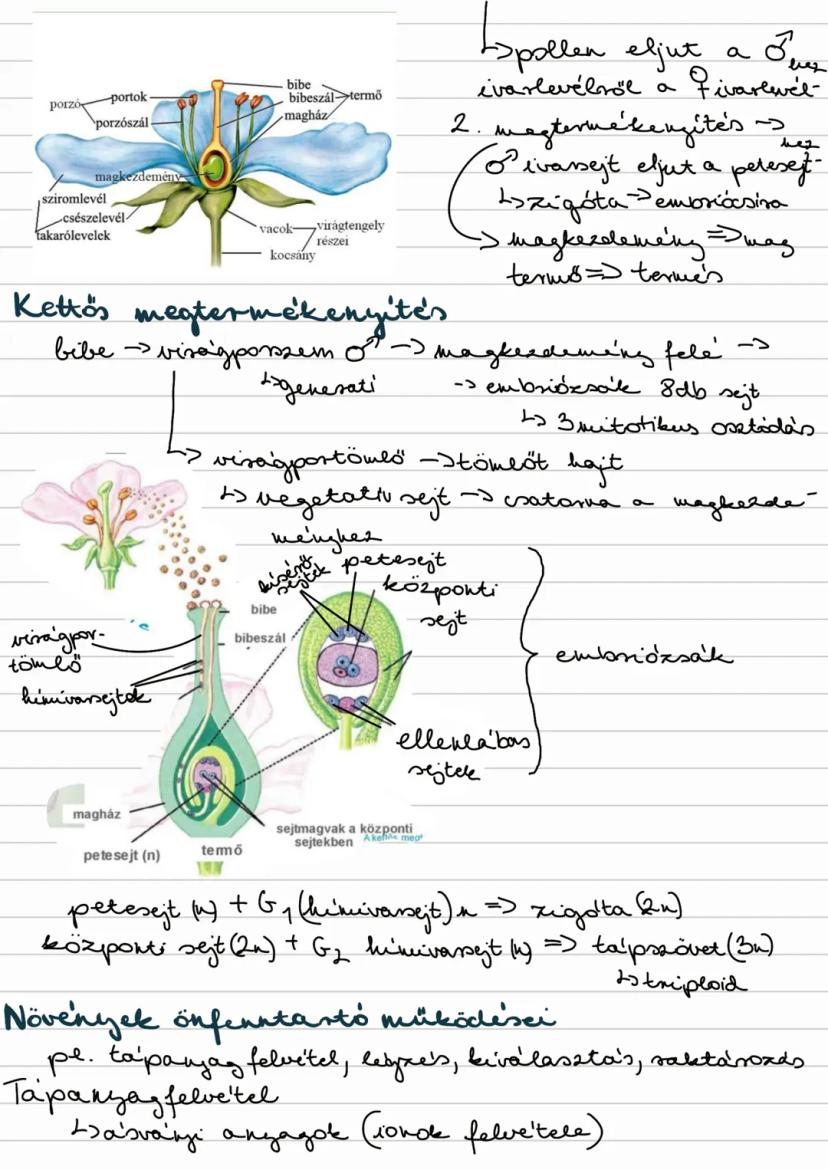 ↳pollen eljut a ♂
ivarlevélről a ♀ivarlevél-hez
2. megtermékenyítés →
♂ ivarsejt eljut a petesejt-hez
↳zigóta→embriócsíra
→ magkezdemény⇒mag
termő⇒ termés
bibe
portok
bibeszál
termő
porzó
magház
porzószál
magkezdemény
sziromlevél
csészelevél
takarólevelek
vacok
virágtengely
részei
kocsány
Kettős megtermékenyítés
bibe → virágporszem ♂ → magkezdemény felé →
↳generatí
→ embriózsák 8db sejt
↳ 3 mitotikus osztódás
↳ virágportömlő → tömlőt hajt
↳ vegetatív sejt → csatorna a magkezde-
ményhez
kísérő
sejtek
petesejt
központi
sejt
bibe
bibeszál
virágpor-
tömlő
hímivarsejtek
embriózsák
ellenlábas
sejtek
magház
sejtmagvak a központi
sejtekben
A kettős megt
petesejt (n)
termő
petesejt (n) + G1 (hímivarsejt) n ⇒ zigóta (2n)
központi sejt (2n) + G2 hímivarsejt (n) ⇒ tápszövet (3n)
↳triploid
Növények önfenntartó működései
pl. tápanyagfelvétel, légzés, kiválasztás, raktározás
Tápanyagfelvétel
↳ásványi anyagok (ionok felvétele)